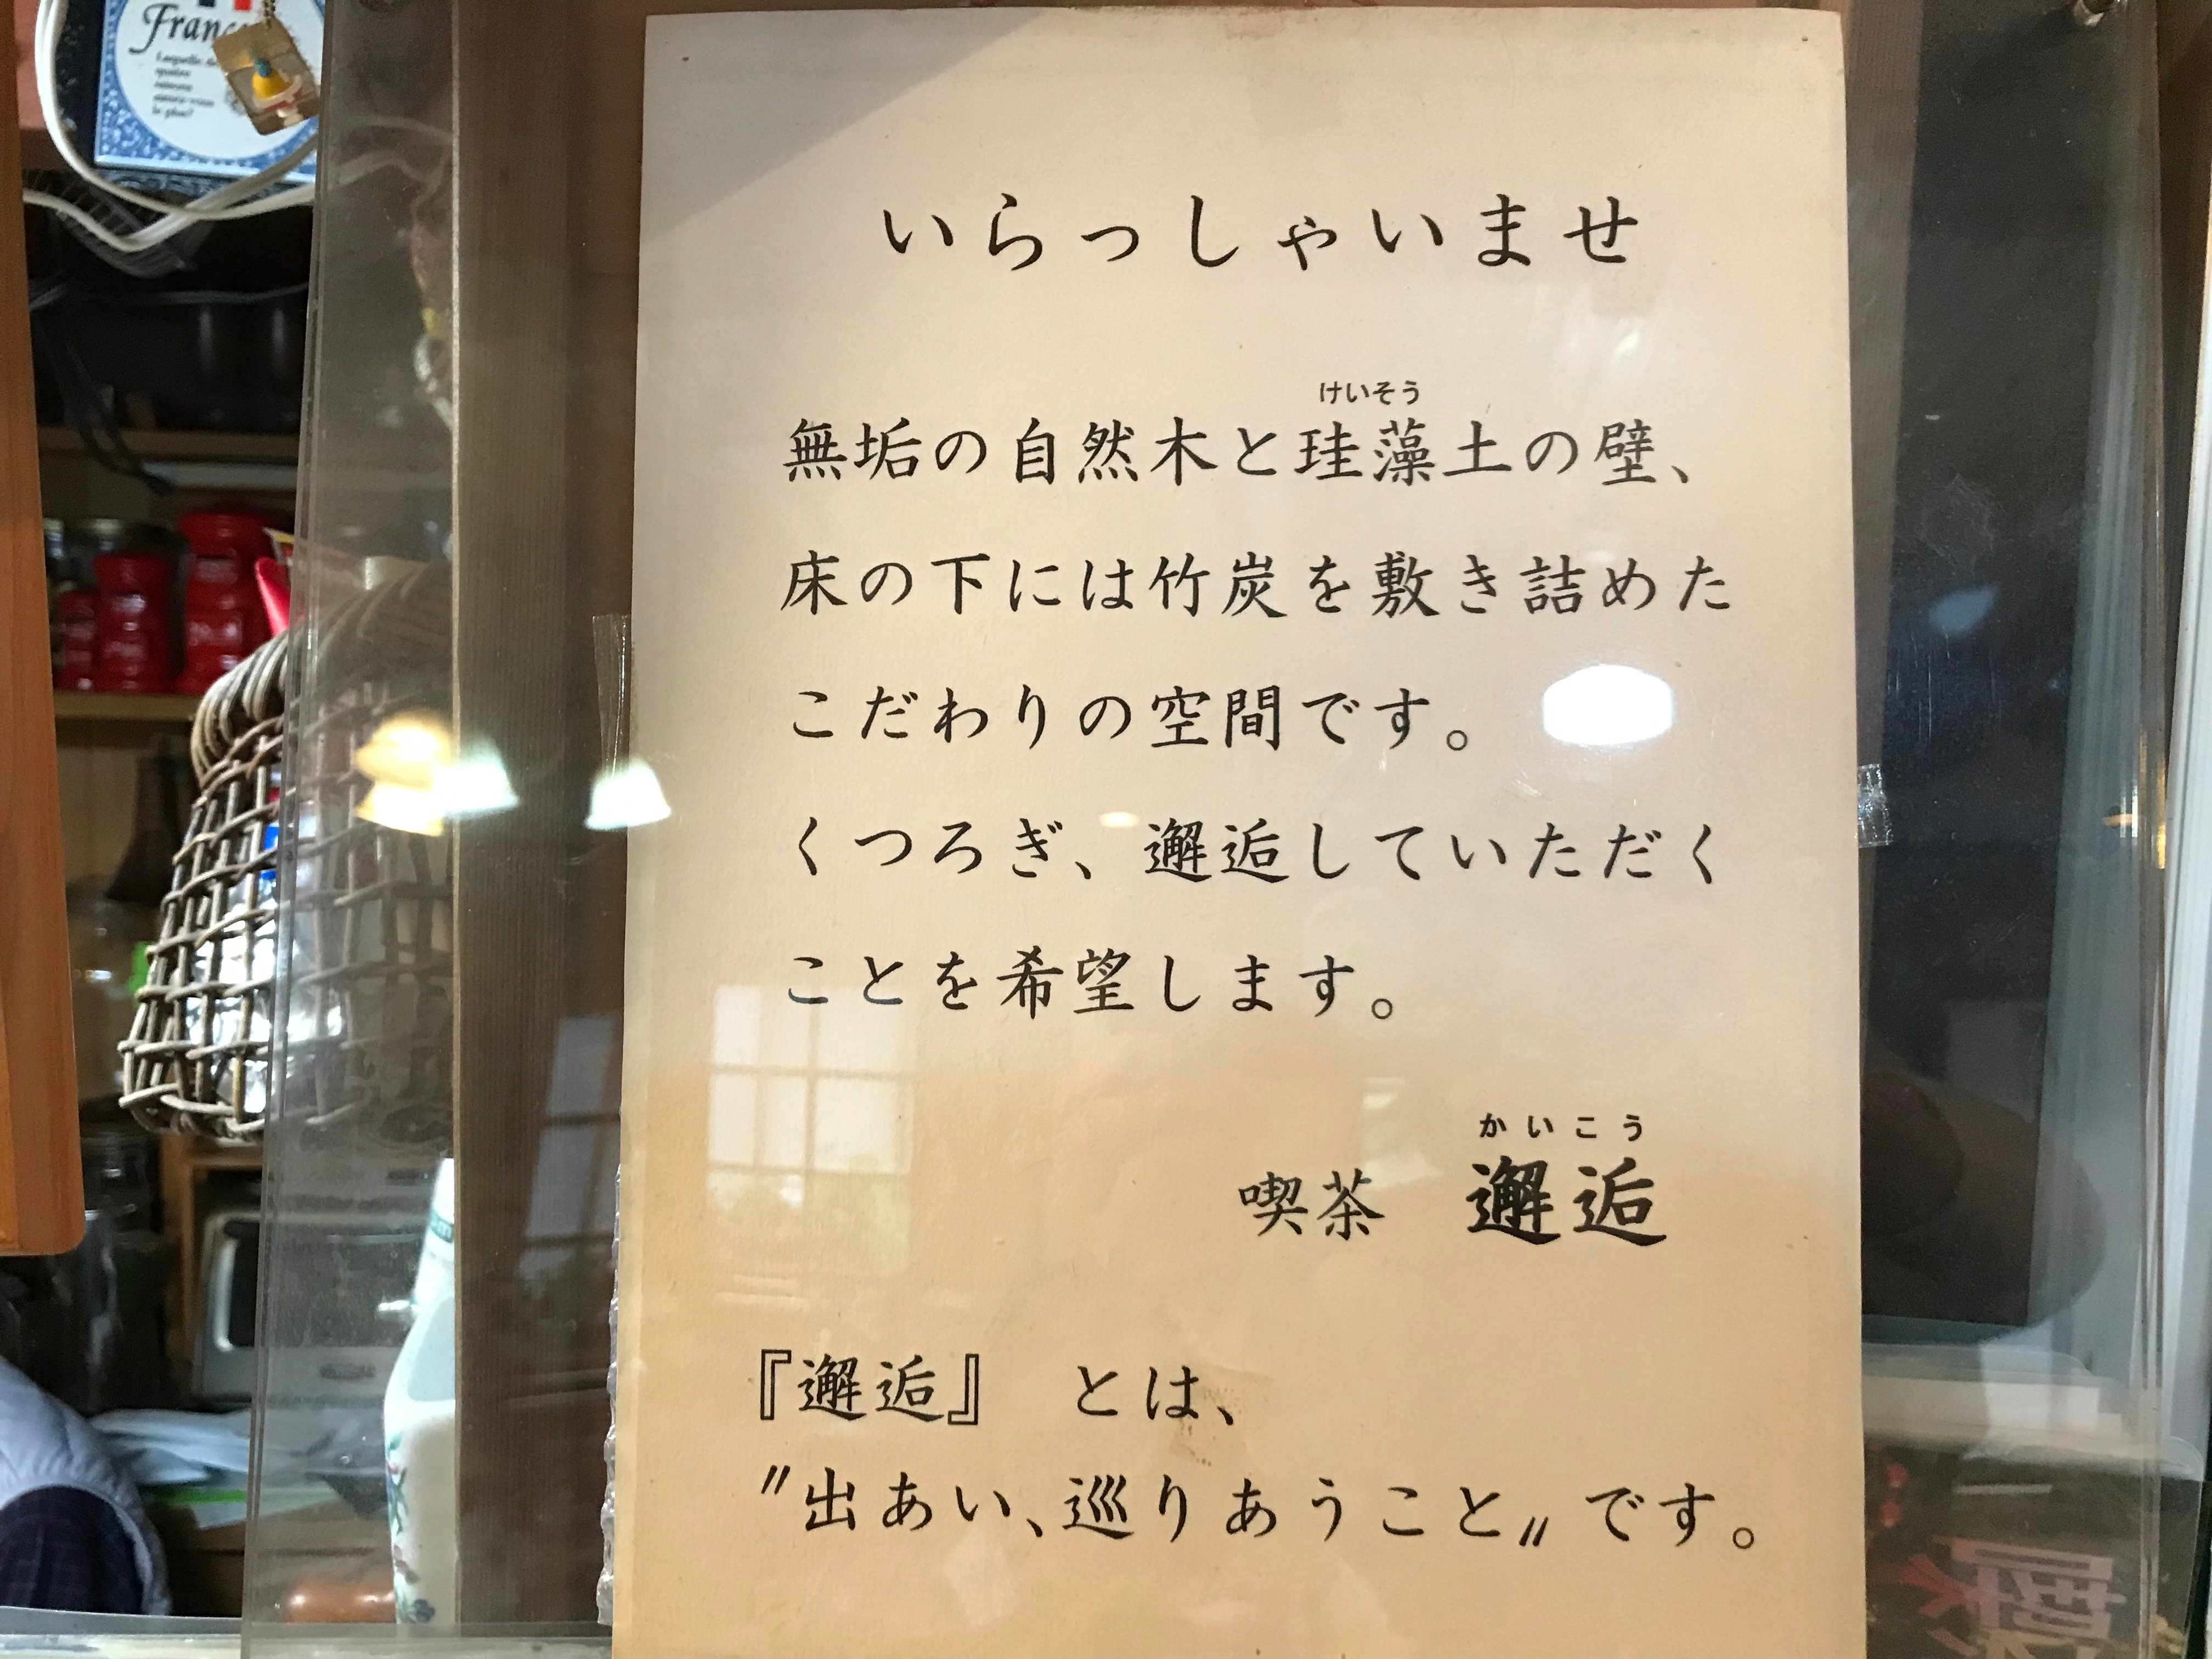 Franc
いらっしゃいませ
けいそう
無垢の自然木と珪藻土の壁、
床の下には竹炭を敷き詰めた
こだわりの空間です。
くつろぎ、邂逅していただく
ことを希望します。
かいこう
喫茶　邂逅
『邂逅』　とは、
〝出あい、巡りあうこと〟です。